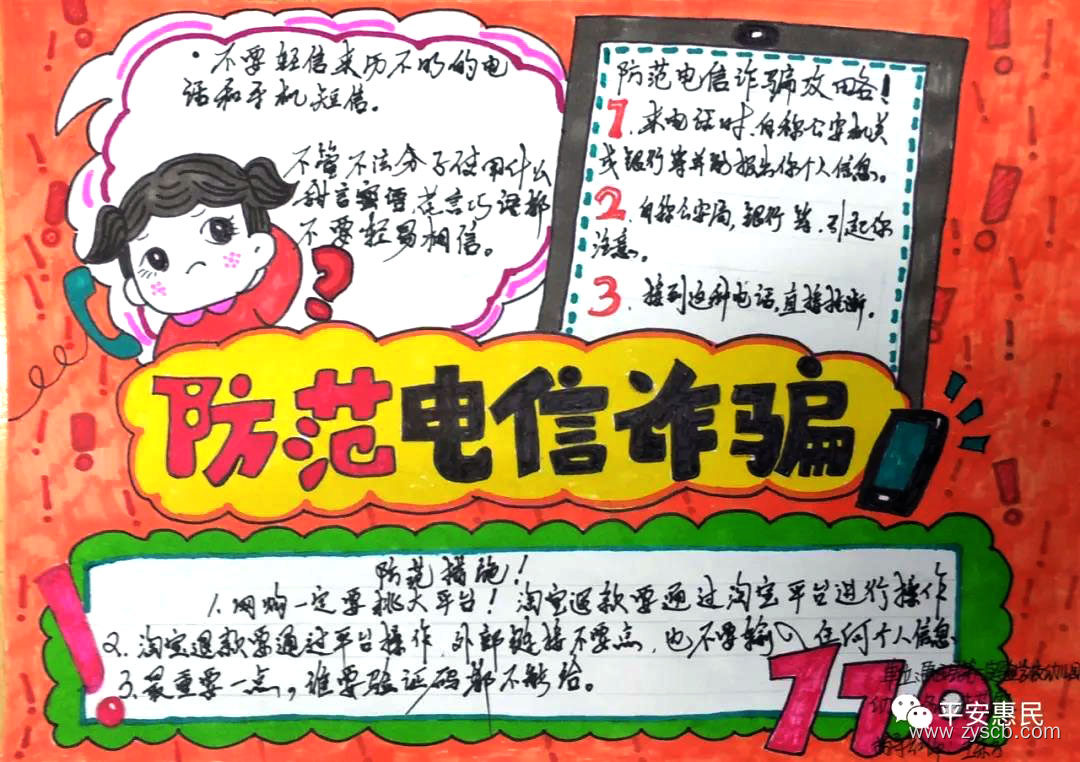 ·不要轻信来历不明的电
话和手机短信。
不管不法分子使用什么
甜言蜜语,花言巧语都
不要轻易相信。
?
防范电信诈骗攻略!
1.来电话时,自称公安机关
或银行等并能报出你个人信息。
2.自称公安局,银行等,引起你
注意。
3.接到这种电话,直接挂断。
防范电信诈骗
防范措施!
1.网购一定要挑大平台!淘宝退款要通过淘宝平台进行操作
2.淘宝退款要通过平台操作,外部链接不要点,也不要输入任何个人信息
3.最重要一点,谁要验证码都不能给。
110
单位:
平安惠民
www.zyscb.com